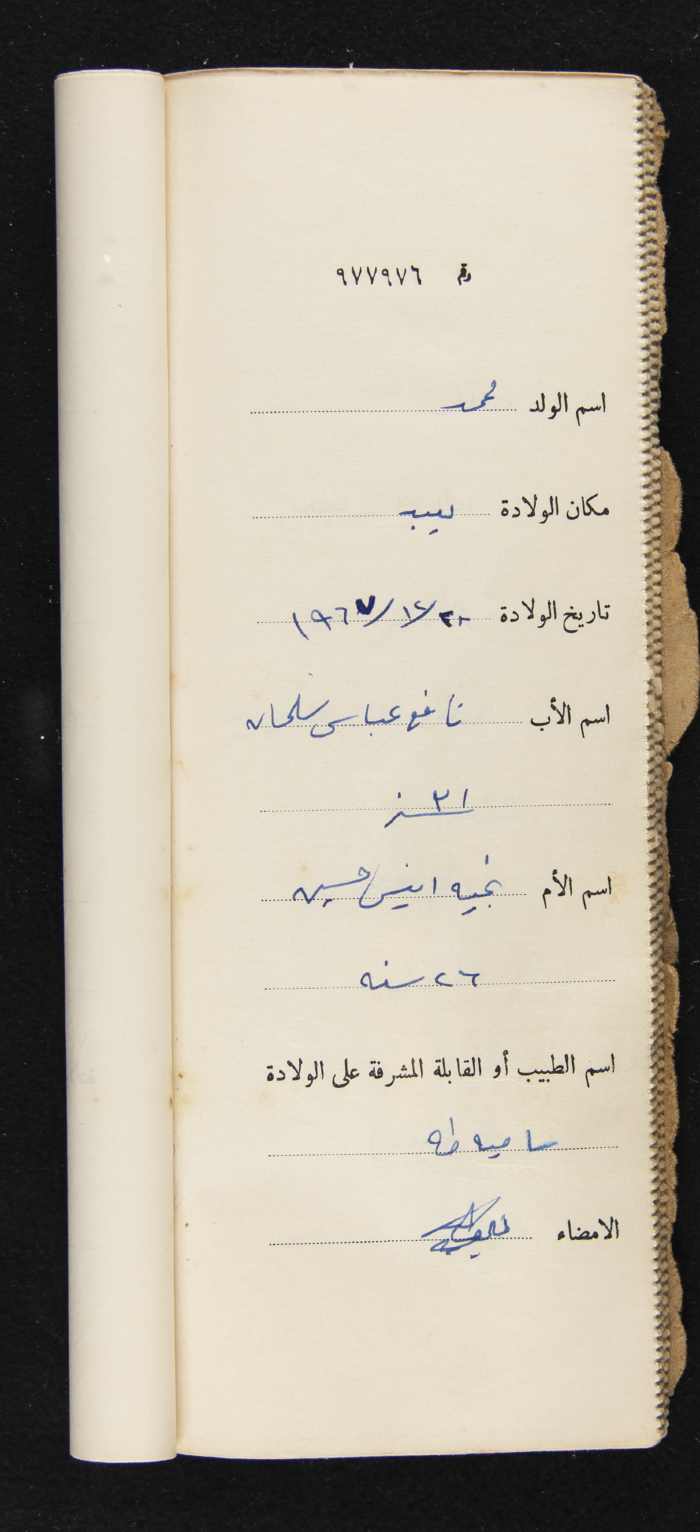 رقم ٩٧٧٩٧٦
اسم الولد محمد
مكان الولادة
تاريخ الولادة ٢٠/١٢/١٩٦٧
اسم الأب نافع عباس سلمان
٣١ سنه
اسم الأم نجيه انيس حسين
٢٦ سنه
اسم الطبيب أو القابلة المشرفة على الولادة
ساميه طه
الامضاء